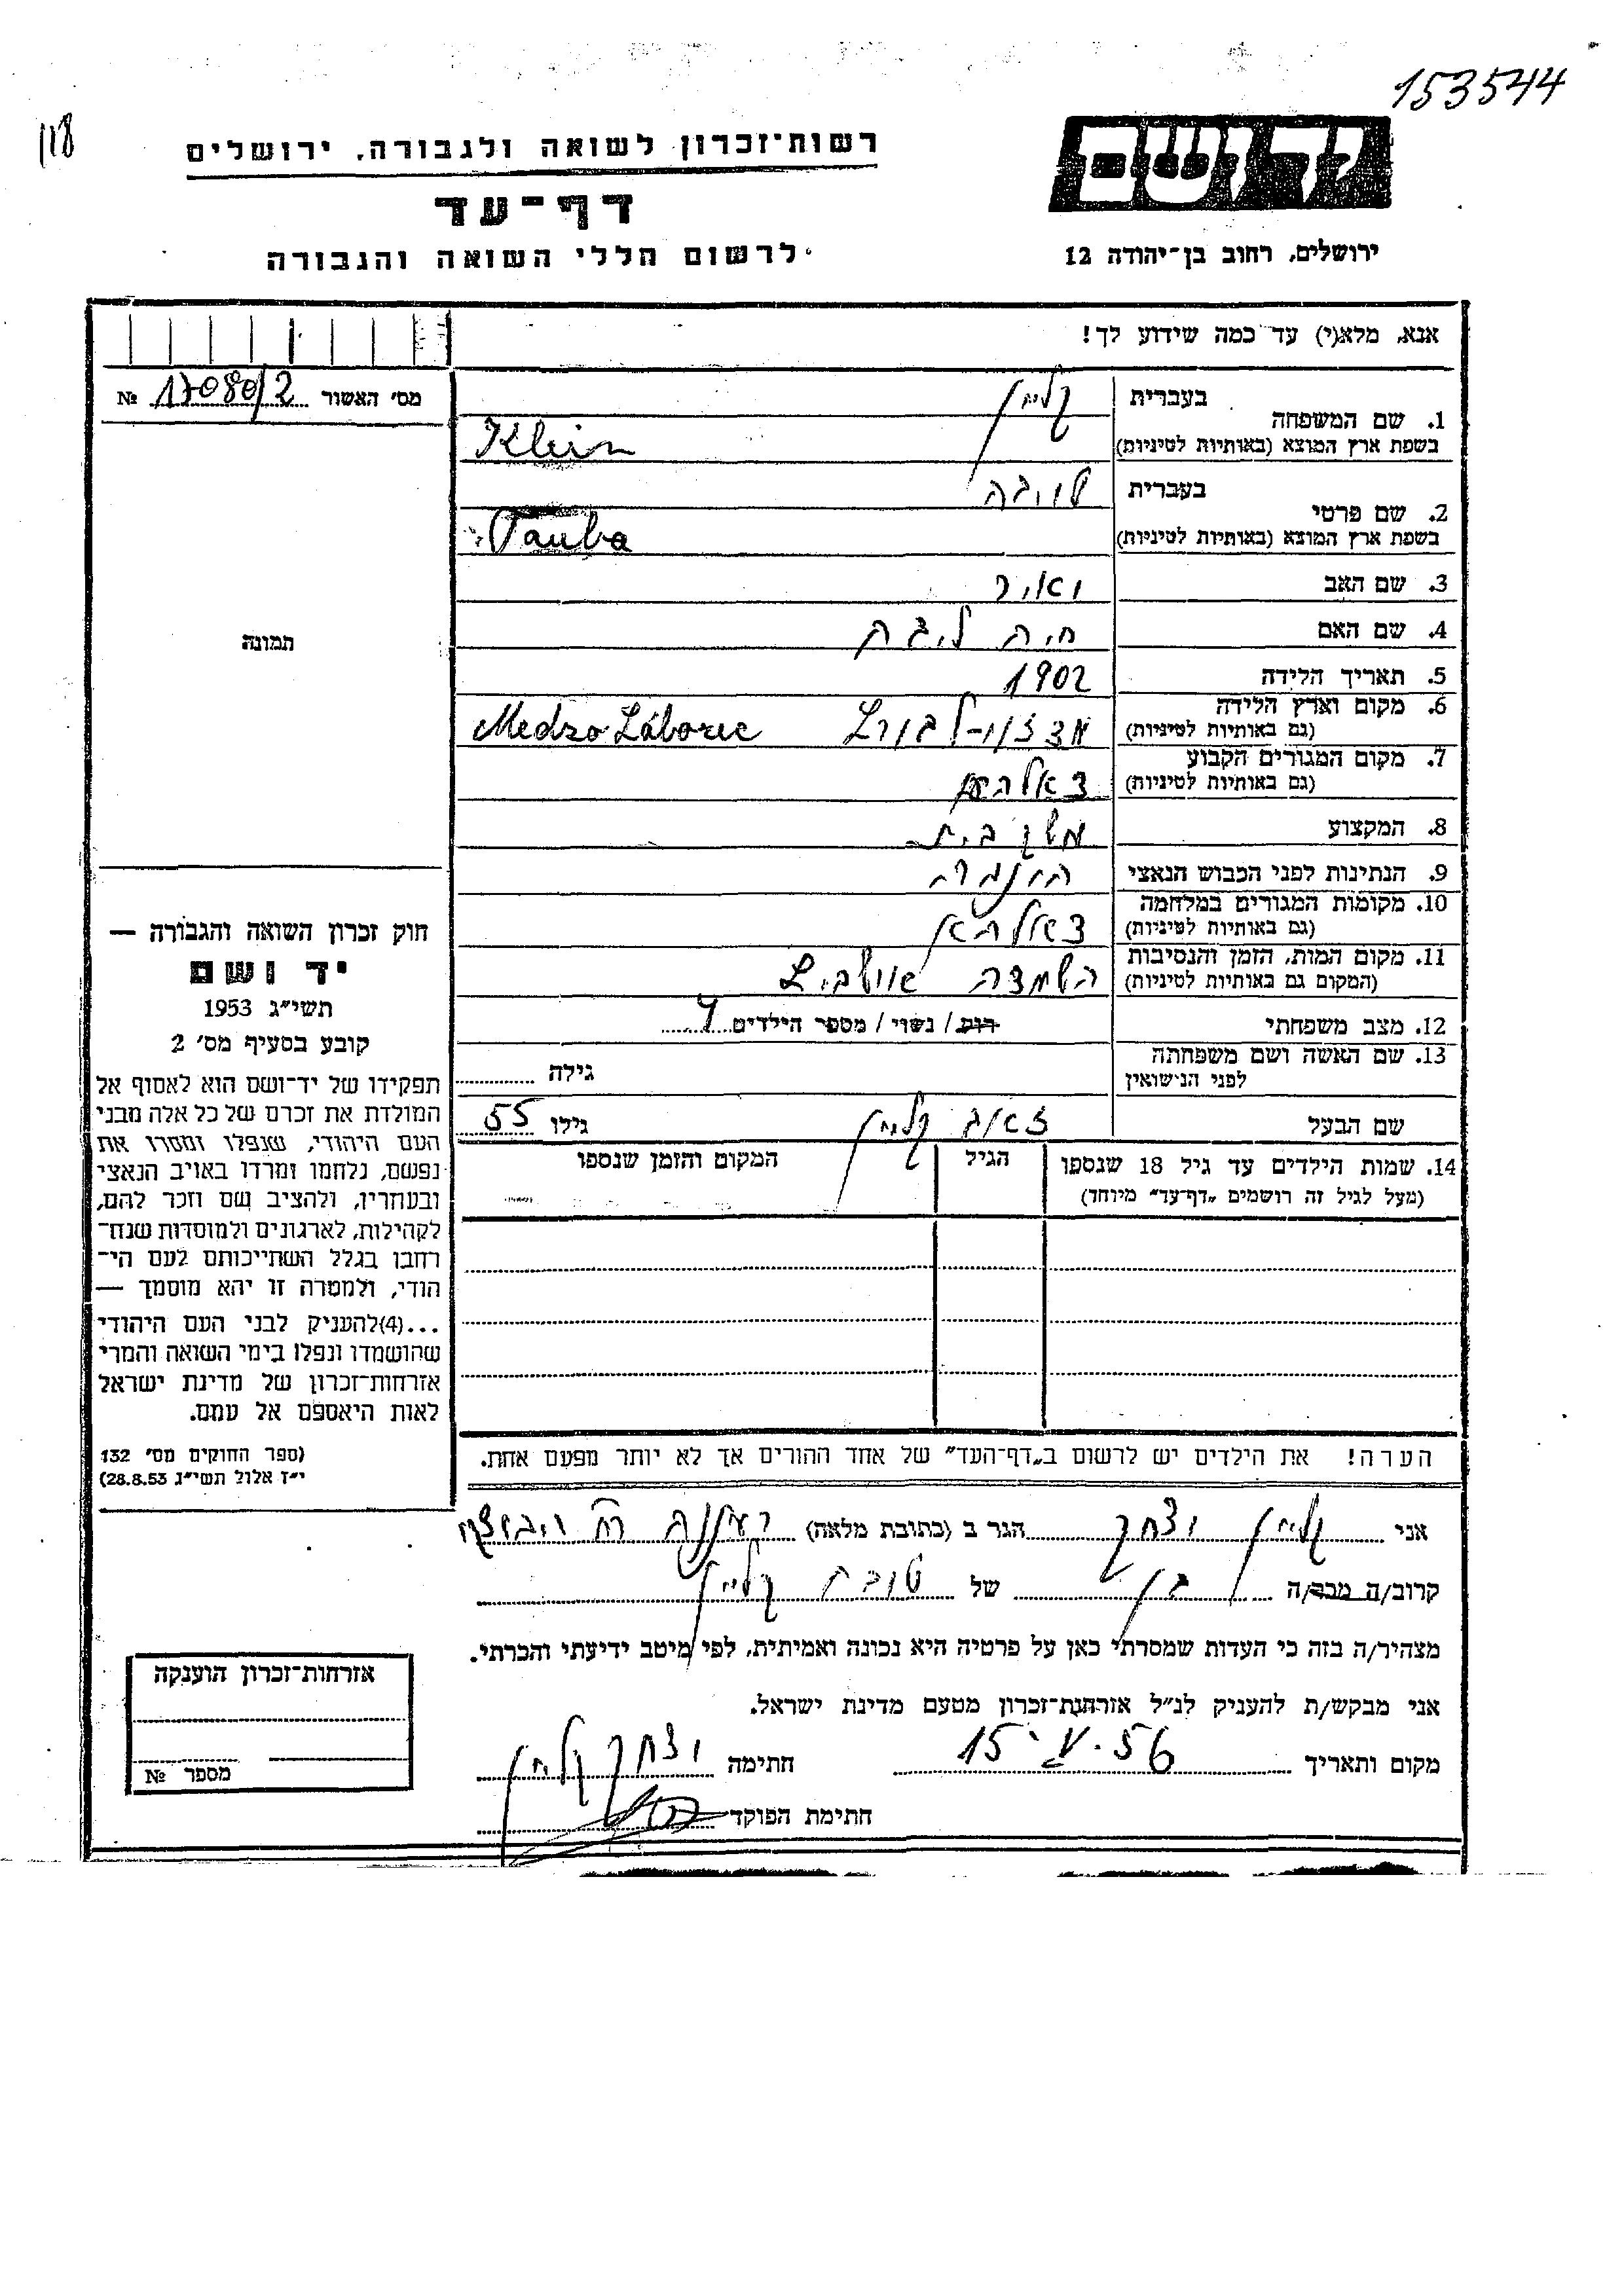 153544
118
ידושם
רשות־זכרון לשואה ולגבורה, ירושלים
דף־עד
לרשום חללי השואה והגבורה
ירושלים, רחוב בן־יהודה 12
אנא, מלא(י) עד כמה שידוע לך!
מס׳ האשור 17080/2 №
1. שם המשפחה
בעברית קליין
בשפת ארץ המוצא (באותיות לטיניות) Klein
2. שם פרטי
בעברית
בשפת ארץ המוצא (באותיות לטיניות) Tauba
3. שם האב
4. שם האם חיה ליבה
5. תאריך הלידה 1902
6. מקום וארץ הלידה
(גם באותיות לטיניות) Medzo Láborec
7. מקום המגורים הקבוע
(גם באותיות לטיניות)
8. המקצוע משק בית
9. הנתינות לפני הכבוש הנאצי
10. מקומות המגורים במלחמה
(גם באותיות לטיניות)
11. מקום המות, הזמן והנסיבות
(המקום גם באותיות לטיניות) השמדה
12. מצב משפחתי רוק / נשוי / מספר הילדים 4
13. שם האשה ושם משפחתה
לפני הנישואין
גילה
שם הבעל קליין גילו 55
14. שמות הילדים עד גיל 18 שנספו
(מעל לגיל זה רושמים „דף־עד״ מיוחד)
הגיל
המקום והזמן שנספו
הערה! את הילדים יש לרשום ב„דף־העד״ של אחד ההורים אך לא יותר מפעם אחת.
תמונה
חוק זכרון השואה והגבורה —
יד ושם
תשי״ג 1953
קובע בסעיף מס׳ 2
תפקידו של יד־ושם הוא לאסוף אל
המולדת את זכרם של כל אלה מבני
העם היהודי, שנפלו ומסרו את
נפשם, נלחמו ומרדו באויב הנאצי
ובעוזריו, ולהציב שם וזכר להם,
לקהילות, לארגונים ולמוסדות שנח־
רבו בגלל השתייכותם לעם הי־
הודי, ולמטרה זו יהא מוסמך —
...(4) להעניק לבני העם היהודי
שהושמדו ונפלו בימי השואה והמרי
אזרחות־זכרון של מדינת ישראל
לאות היאספם אל עמם.
(ספר החוקים מס׳ 132
י״ז אלול תשי״ג 28.8.53)
אני קליין יצחק הגר ב (כתובת מלאה) רעננה רח׳
קרוב/ה מכר/ה בן של טובה קליין
מצהיר/ה בזה כי העדות שמסרתי כאן על פרטיה היא נכונה ואמיתית, לפי מיטב ידיעתי והכרתי.
אני מבקש/ת להעניק לנ״ל אזרחות־זכרון מטעם מדינת ישראל.
מקום ותאריך 15.V.56 חתימה יצחק קליין
חתימת הפוקד
אזרחות־זכרון הוענקה
מספר №